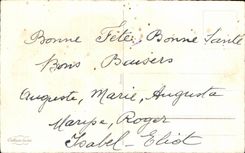 Bonne Fête, Bonne Santé
Bons Baisers
Auguste, Marie, Augusta
Roger
Isabel - Eliot